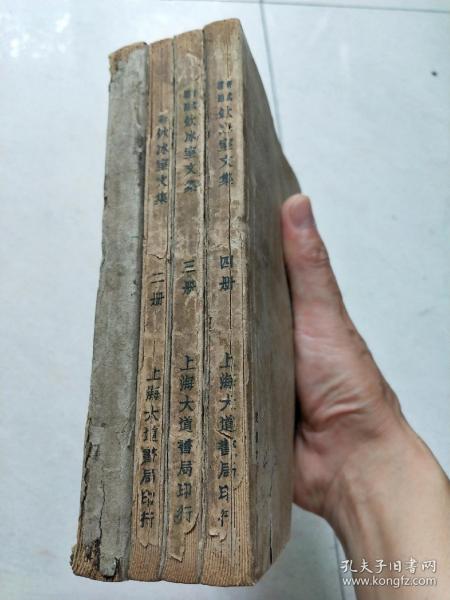 飲冰室文集
二册
上海大道書局印行
新式
標點
飲冰室文集
三册
上海大道書局印行
新式
標點
飲冰室文集
四册
上海大道書局印行
孔夫子旧书网
www.kongfz.com